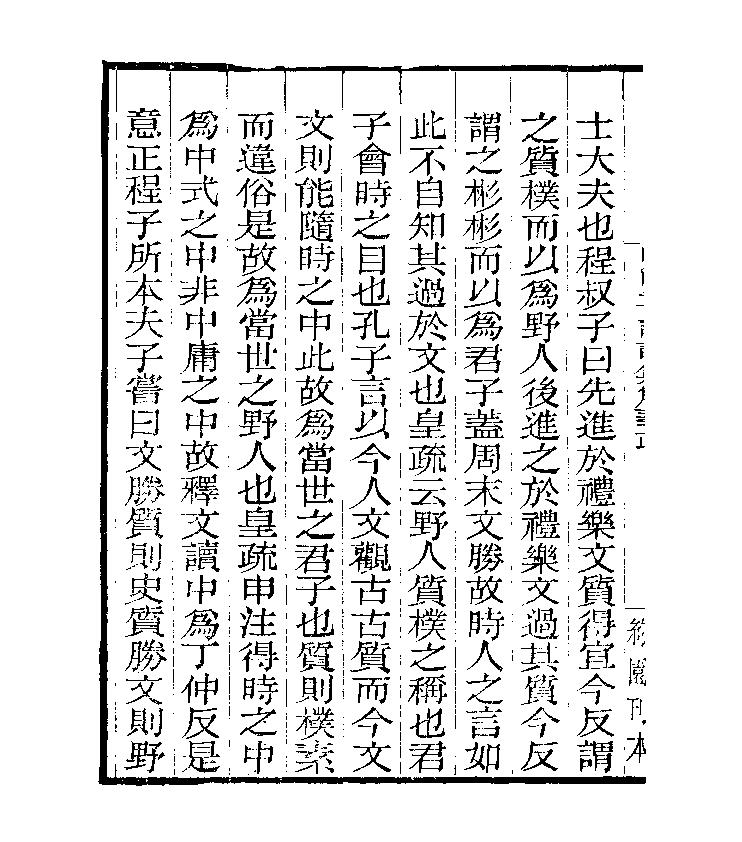 士大夫也程叔子曰先進於禮樂文質得宜今反謂
之質樸而以爲野人後進之於禮樂文過其質今反
謂之彬彬而以爲君子蓋周末文勝故時人之言如
此不自知其過於文也皇疏云野人質樸之稱也君
子會時之目也孔子言以今人文觀古古質而今文
文則能隨時之中此故爲當世之君子也質則樸素
而違俗是故爲當世之野人也皇疏申注得時之中
爲中式之中非中庸之中故釋文讀中爲丁仲反是
意正程子所本夫子嘗曰文勝質則史質勝文則野
刊本